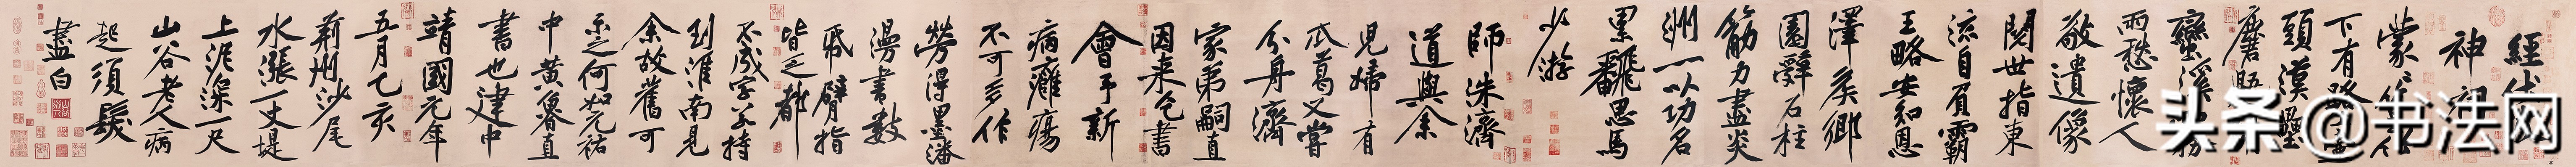 經伏
神祠
蒙
下有路
頭漢壘
麏鼯
蠻溪霧
雨愁懷人
敬遺像
閱世指東
流自負霸
王略安知恩
澤侯鄉
園辭石柱
筋力盡炎
洲一以功名
累翻思馬
少游
師洙濟
道與余
兒婦有
瓜葛又嘗
分舟濟
家弟嗣直
因來乞書
會予新
病癰瘍
不可多作
勞得墨瀋
漫書數
紙臂指
皆乏都
不成字若持
到淮南見
余故舊可
示之何如元祐
中黃魯直
書也建中
靖國元年
五月乙亥
荊州沙尾
水漲一丈堤
上泥深一尺
山谷老人病
起須髮
盡白
头条 @书法网